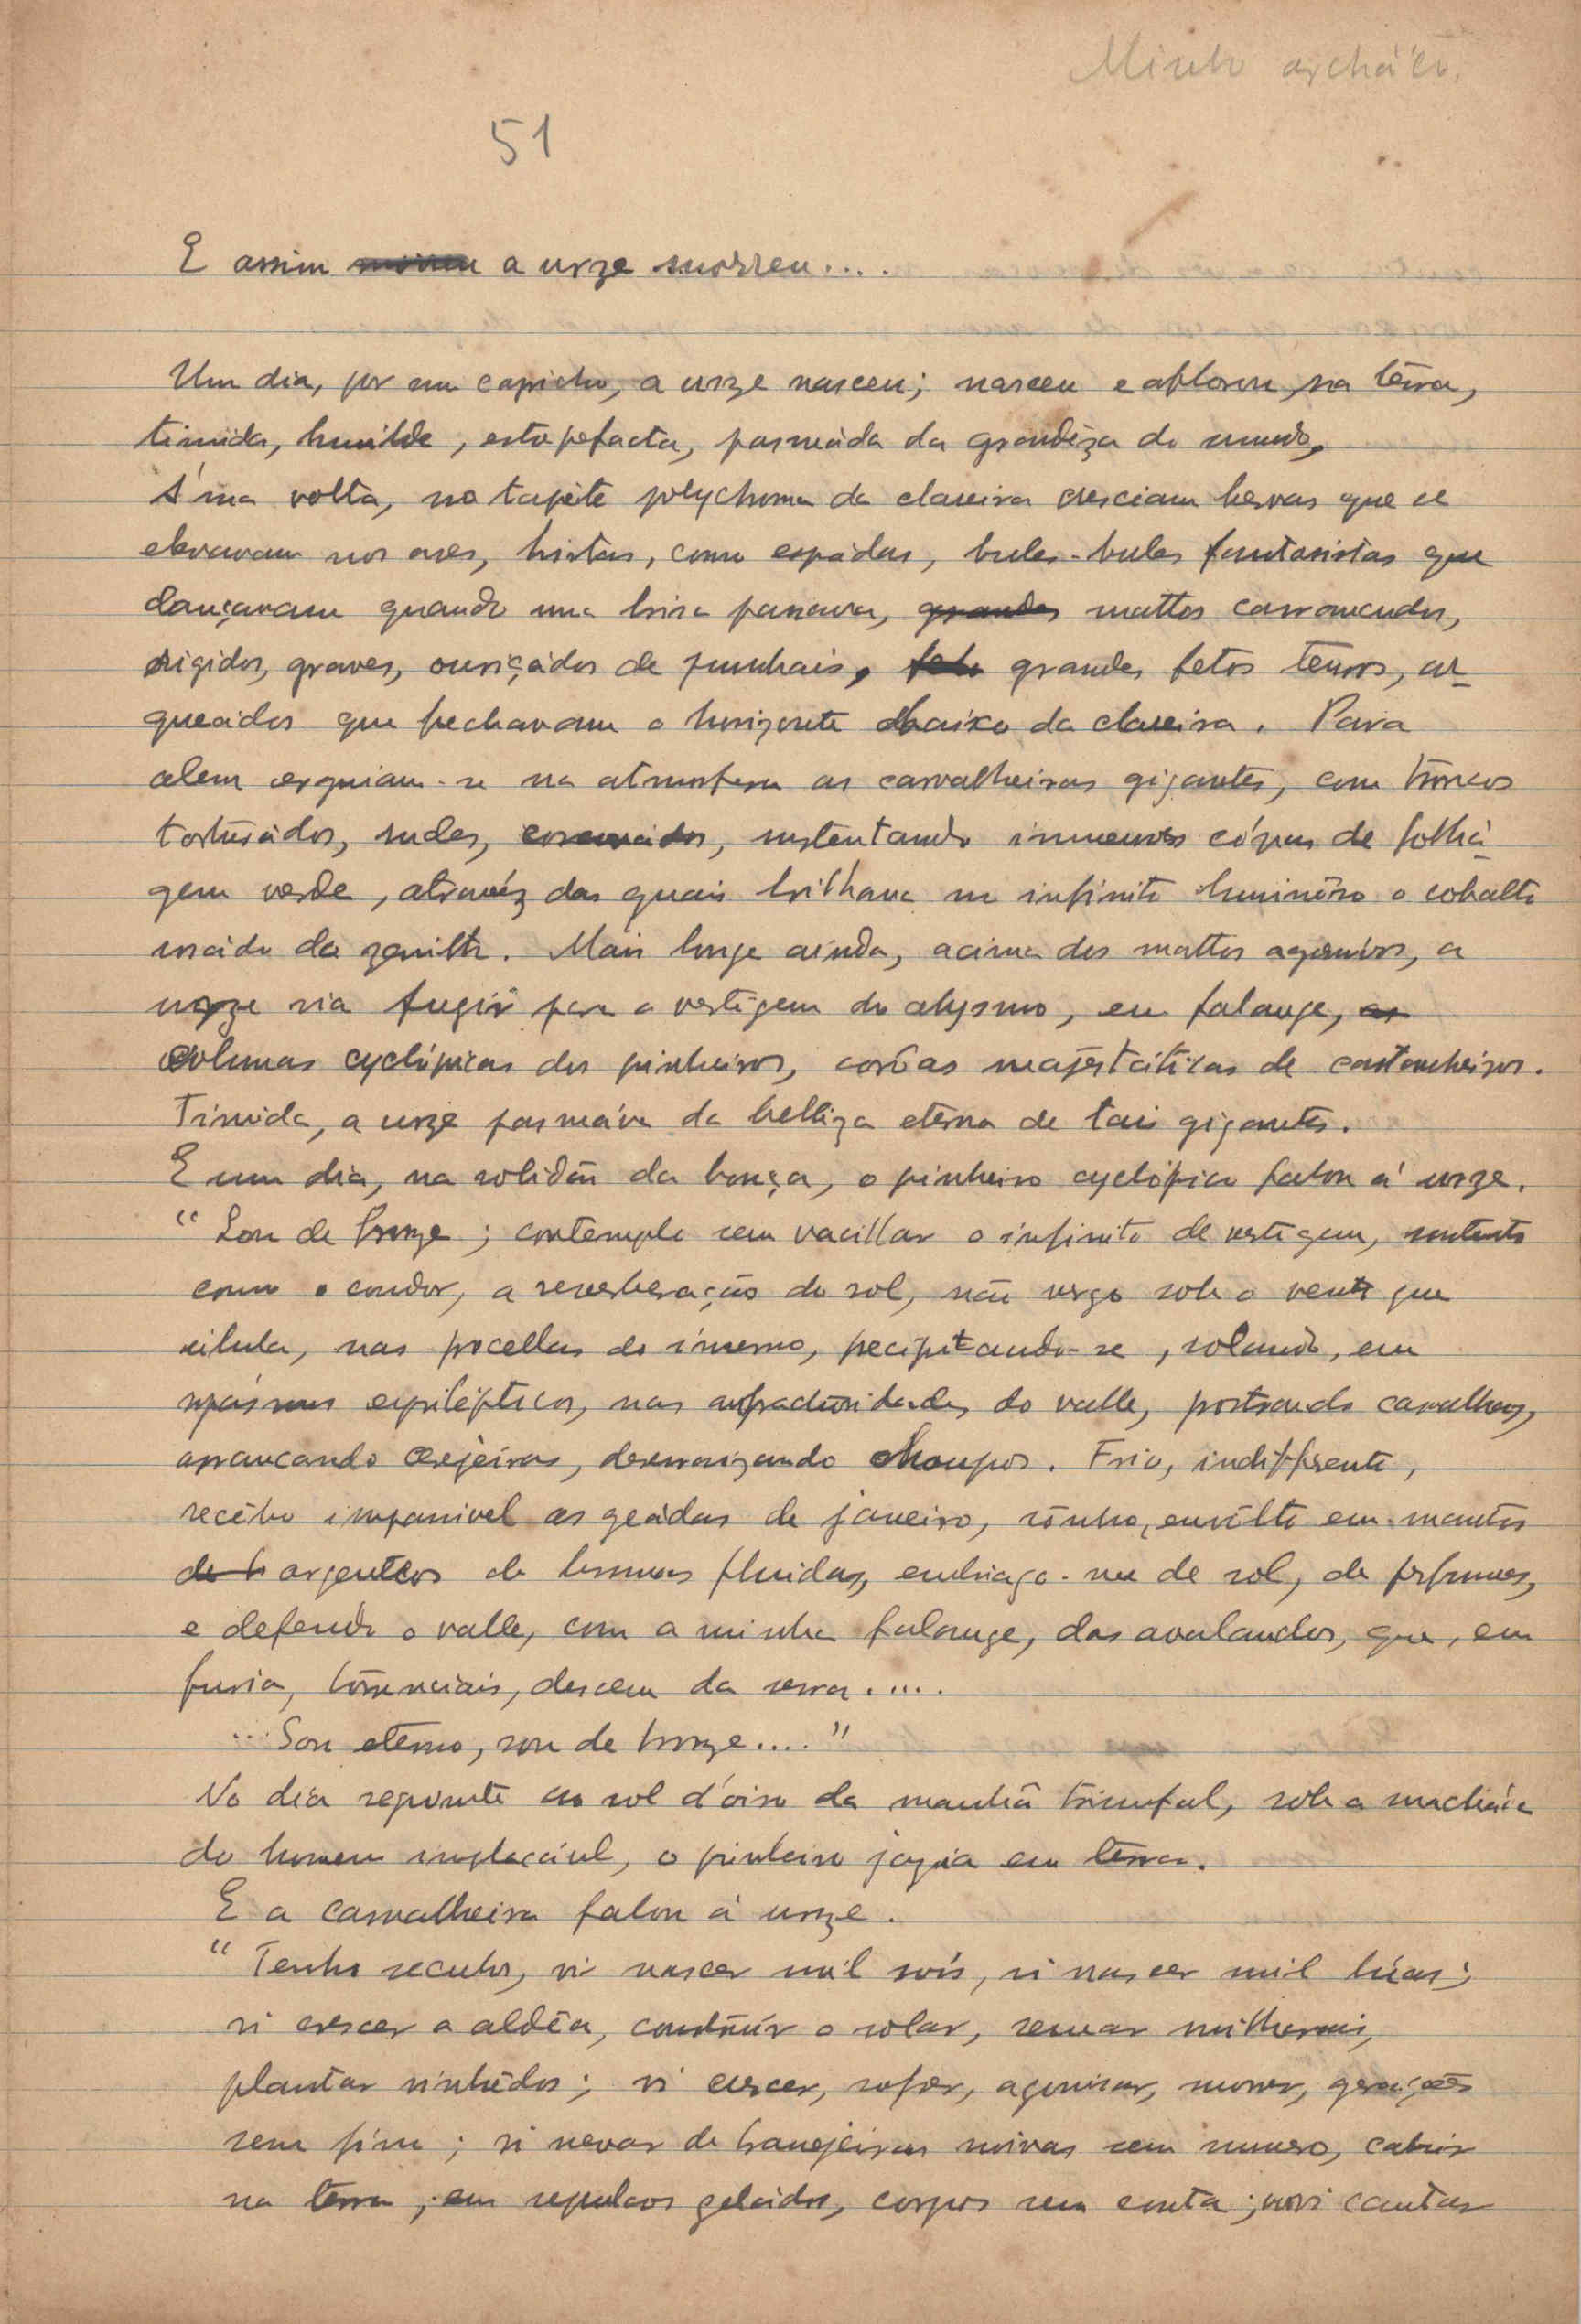 Minho archáico.
51
E assim morreu a urze morreu....
Um dia, por um capricho, a urze nasceu; nasceu e aflorou, na terra,
timida, humilde, estupefacta, pasmáda da grandêza do mundo,
Á sua volta, no tapête polychromo da clareira cresciam hervas que se
elevavam nos ares, hirtas, como espádas, bules-bules fantasistas que
dançavam quando uma briza passava, grandes mattos carrancudos,
rigidos, graves, ouriçádos de punhais, feto grandes fetos tenros, ar-
queados que fechavam o horizonte baixo da clareira. Para
alem erguiam-se na atmosfera as carvalheiras gigantes, com troncos
torturádos, rudes, sustentando immensos cópas de folhá-
gem verde, atravéz das quais brilhava no infinito luminôzo o cobalto
do zenith. Mais longe ainda, acima dos mattos agrestes, a
urze via fugir para a vertigem do abysmo, em falange, as
colunas cyclópicas dos pinheiros, corôas majestáticas de castanheiros.
Timida, a urze pasmáva da belleza eterna de tais gigantes.
E um dia, na solidão da bouça, o pinheiro cyclópico falou á urze.
"Sou de bronze; contemplo sem vacillar o infinito de vertigem, sustento
como o condor, a reverberação do sol, não vergo sob o vento que
silula, nas procellas do inverno, precipitando-se, rolando, em
espásmos epilépticos, nas anfractuosidades do valle, prostrando carvalhos,
arrancando cerejeiras, desenraizando choupos. Frio, indifferente,
recébo impassivel as geádas de janeiro, sônho, envôlto em mantos
de b argenteos de brumas fluidas, embriago-me de sol, de perfumes,
e defendo o valle, com a minha falange, das avalanches, que, em
furia, torrenciais, descem da serra.....
...Sou eterno, sou de bronze...."
No dia seguinte ao sol d'oiro da manhã triumfal, sob a macháda
do homem implacável, o pinheiro jazia em terra.
E a carvalheira falou á urze.
"Tenho seculos, vi nascer mil sóis, vi nascer mil lúas;
vi crescer a aldêa, construir o solar, semear milharais,
plantar vinhêdos; vi crescer, sofrer, agonizar, morrer, gerações
sem fim; vi nevar de laranjeiras noivas sem numero, cahir
na terra, em sepulcros geládos, corpos sem conta; ouvi cantar